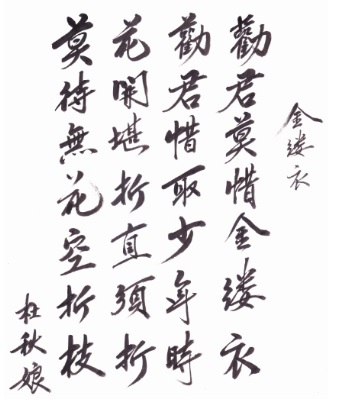 金缕衣
勸君莫惜金缕衣
勸君惜取少年時
花開堪折直須折
莫待無花空折枝
杜秋娘